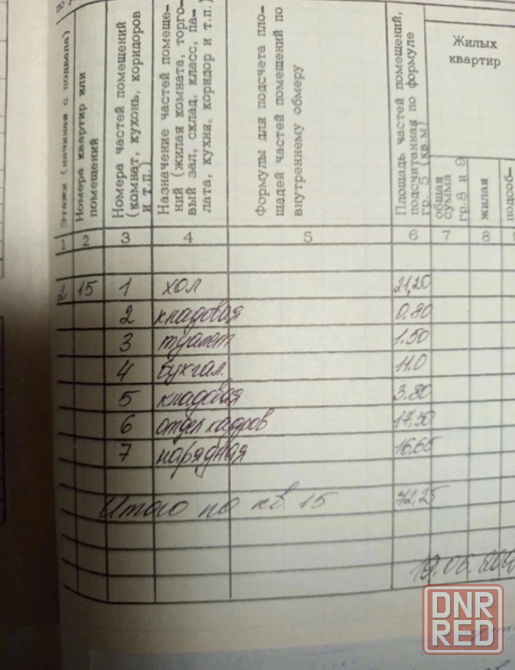 Этажи (начиная с подвала)
Номера квартир или помещений
Номера частей помещений (комнат, кухонь, коридоров и т.п.)
Назначение частей помеще-
ний (жилая комната, торго-
вый зал, склад, класс, па-
лата, кухня, коридор и т.п.)
Формулы для подсчета пло-
щадей частей помещений по
внутреннему обмеру
Площадь частей помещений,
подсчитанная по формуле
гр. 5 (кв м)
Жилых
квартир
общая
сумма
гр.8 и 9
жилая
подсоб-
1 2 3 4 5 6 7 8
2 15 1 хол 21,20
2 кладовая 0.80
3 туалет 1.50
4 бухгал. 11.0
5 кладовая 3.80
6 отдел кадров 17,30
7 нарядная 16,65
Итого по кв. 15 72,25
DNR
RED